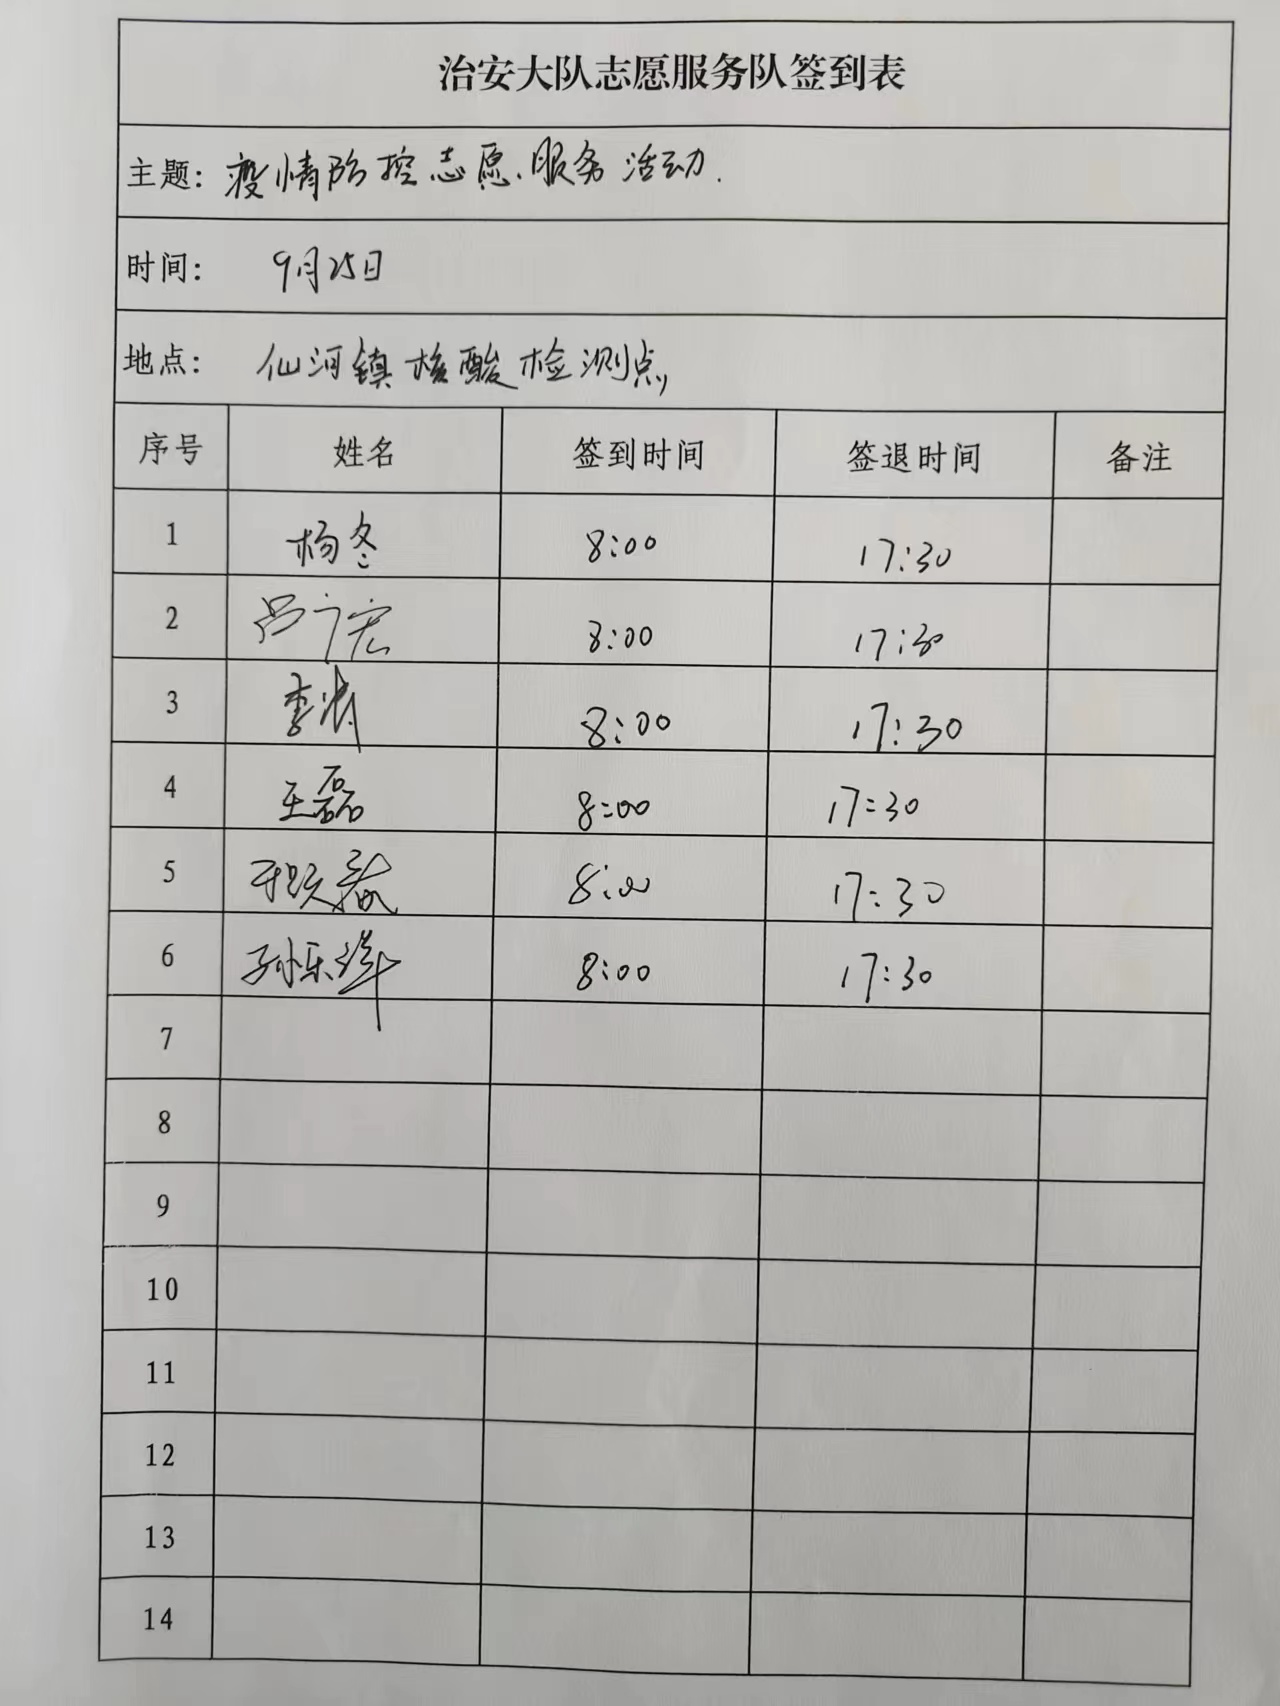 治安大队志愿服务队签到表
主题: 疫情防控志愿服务活动.
时间: 9月25日
地点: 仙河镇核酸检测点
序号 姓名 签到时间 签退时间 备注
1 杨冬 8:00 17:30
2 吕广宏 8:00 17:30
3 李 8:00 17:30
4 王磊 8:00 17:30
5 8:00 17:30
6 孙乐祥 8:00 17:30
7
8
9
10
11
12
13
14